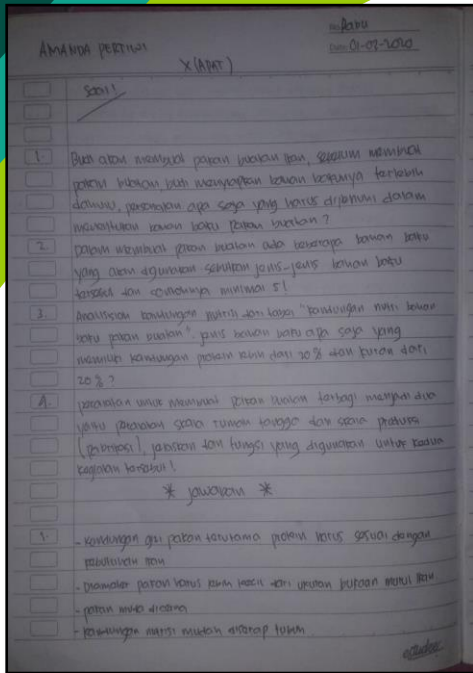 Rabu
01-03-2020
AMANDA PERTIWI
X (APAT)
Soal!
1. Budi akan membuat pakan buatan ikan, sebelum membuat
pakan buatan, budi menyiapkan bahan bakunya terlebih
dahulu, persyaratan apa saja yang harus dipenuhi dalam
menentukan bahan baku pakan buatan?
2. Dalam membuat pakan buatan ada beberapa bahan baku
yang akan digunakan sebutkan jenis-jenis bahan baku
tersebut dan contohnya minimal 5!
3. Analisislah kandungan nutrisi dari tabel "kandungan nutrisi bahan
baku pakan buatan". jenis bahan baku apa saja yang
memiliki kandungan protein lebih dari 20% dan kurang dari
20%?
4. peralatan untuk membuat pakan buatan terbagi menjadi dua
yaitu peralatan skala rumah tangga dan skala produksi
(pabrikasi), jelaskan dan fungsi yang digunakan untuk kedua
kegiatan tersebut!
* jawaban *
1. - kandungan gizi pakan terutama protein harus sesuai dengan
kebutuhan ikan
- diameter pakan harus lebih kecil dari ukuran bukaan mulut ikan
- pakan mudah dicerna
- kandungan nutrisi mudah diserap tubuh